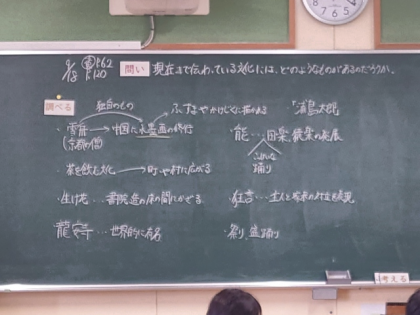 9/18 教P62 P120
問い 現在まで伝わっている文化には、どのようなものがあるのだろうか。
調べる
独自のもの
・雪舟 → 中国に水墨画の修行
(京都の僧)
ふすまやかけじくに描かれる
・茶を飲む文化 → 町や村に広がる
・生け花…書院造の床の間にかざる
・龍安寺…世界的に有名
「浦島太郎」
・能…田楽、猿楽の発展
踊り
・狂言…
・祭り、盆踊り
考える